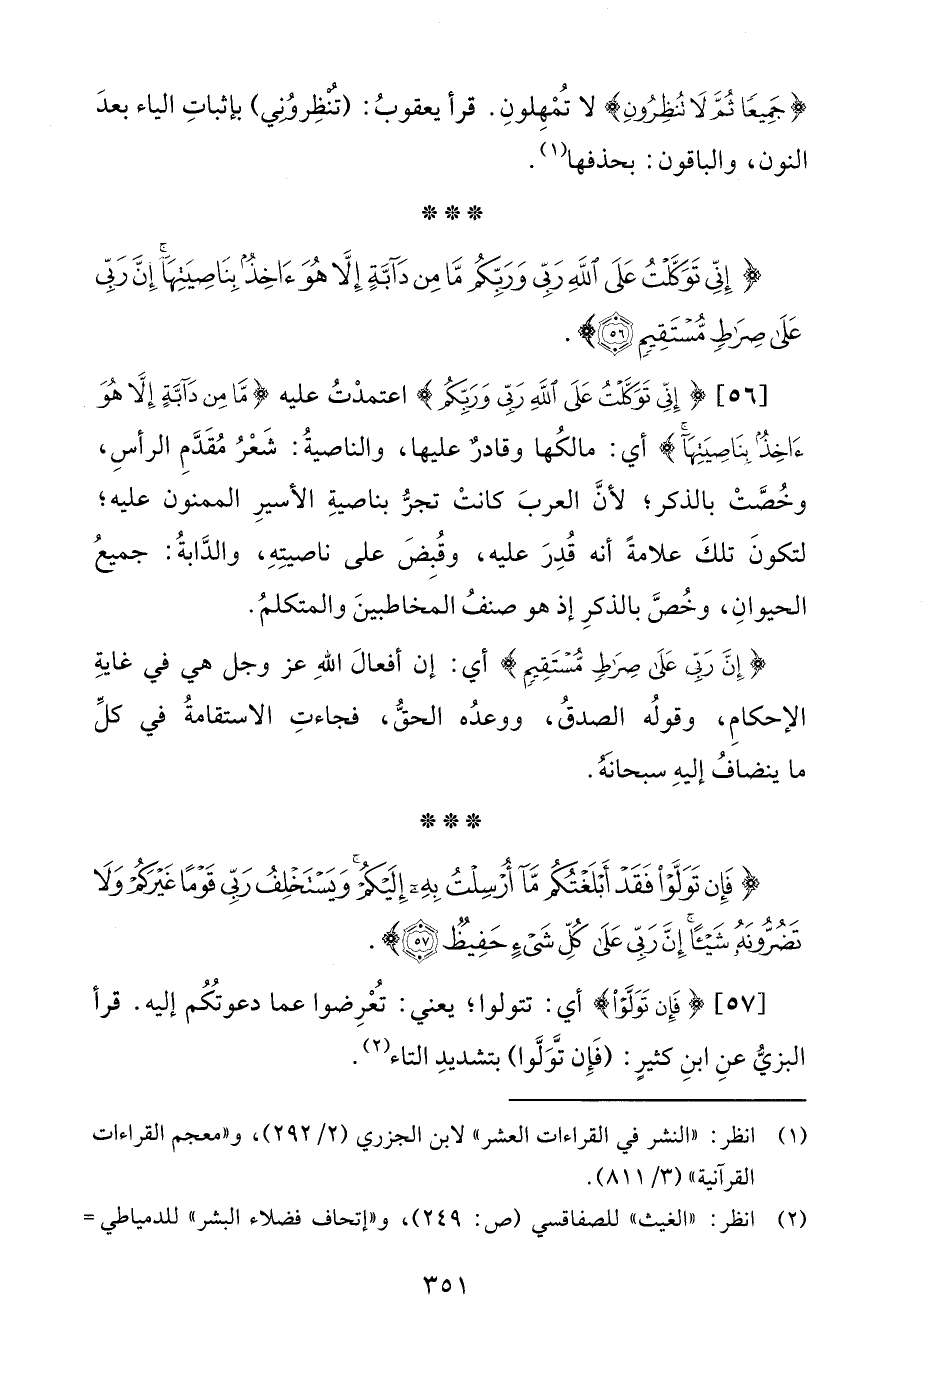 ﴿جَمِيعًا ثُمَّ لَا تُنظِرُونِ﴾ لا تُمْهِلونِ. قرأ يعقوبُ: (تُنْظِرُونِي) بإثباتِ الياء بعدَ
النون، والباقون: بحذفها(١).
* * *
﴿إِنِّي تَوَكَّلْتُ عَلَى ٱللَّهِ رَبِّي وَرَبِّكُم مَّا مِن دَآبَّةٍ إِلَّا هُوَ ءَاخِذٌۢ بِنَاصِيَتِهَآۚ إِنَّ رَبِّي
عَلَىٰ صِرَٰطٍ مُّسْتَقِيمٍ ۝٥٦﴾.
[٥٦] ﴿إِنِّي تَوَكَّلْتُ عَلَى ٱللَّهِ رَبِّي وَرَبِّكُم﴾ اعتمدْتُ عليه ﴿مَّا مِن دَآبَّةٍ إِلَّا هُوَ
ءَاخِذٌۢ بِنَاصِيَتِهَآۚ﴾ أي: مالكُها وقادرٌ عليها، والناصيةُ: شَعْرُ مُقَدَّمِ الرأسِ،
وخُصَّتْ بالذكر؛ لأنَّ العربَ كانتْ تجرُّ بناصيةِ الأسيرِ الممنون عليه؛
لتكونَ تلكَ علامةً أنه قُدِرَ عليه، وقُبِضَ على ناصيتِهِ، والدَّابةُ: جميعُ
الحيوانِ، وخُصَّ بالذكرِ إذ هو صنفُ المخاطبينَ والمتكلمُ.
﴿إِنَّ رَبِّي عَلَىٰ صِرَٰطٍ مُّسْتَقِيمٍ﴾ أي: إن أفعالَ اللهِ عز وجل هي في غايةِ
الإحكامِ، وقولُه الصدقُ، ووعدُه الحقُّ، فجاءتِ الاستقامةُ في كلِّ
ما ينضافُ إليهِ سبحانَهُ.
* * *
﴿فَإِن تَوَلَّوْا۟ فَقَدْ أَبْلَغْتُكُم مَّآ أُرْسِلْتُ بِهِۦٓ إِلَيْكُمْۚ وَيَسْتَخْلِفُ رَبِّي قَوْمًا غَيْرَكُمْ وَلَا
تَضُرُّونَهُۥ شَيْـًٔاۚ إِنَّ رَبِّي عَلَىٰ كُلِّ شَيْءٍ حَفِيظٌ ۝٥٧﴾.
[٥٧] ﴿فَإِن تَوَلَّوْا۟﴾ أي: تتولوا؛ يعني: تُعْرِضوا عما دعوتُكُم إليه. قرأ
البزيُّ عنِ ابنِ كثيرٍ: (فَإِن تَّوَلَّوا) بتشديدِ التاء(٢).
(١) انظر: «النشر في القراءات العشر» لابن الجزري (٢/ ٢٩٢)، و«معجم القراءات
القرآنية» (٣/ ٨١١).
(٢) انظر: «الغيث» للصفاقسي (ص: ٢٤٩)، و«إتحاف فضلاء البشر» للدمياطي =
٣٥١